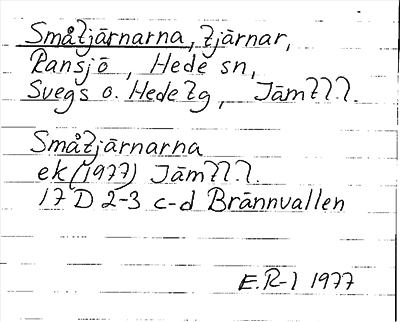 Småtjärnarna, tjärnar,
Ransjö, Hede sn,
Svegs o. Hede tg, Jämtl l.
Småtjärnarna
ek (1977) Jämtl l.
17 D 2-3 c-d Brännvallen
E.R-l 1977